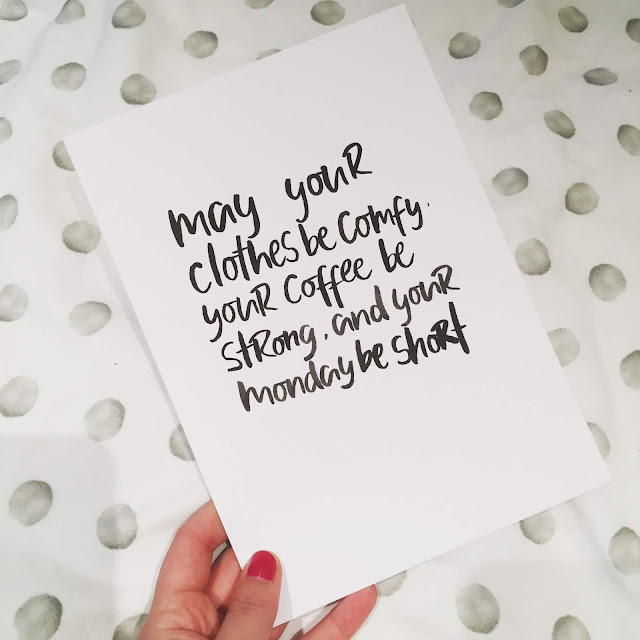 may youR
clothes be comfy,
youR coffee be
stRong, and youR
monday be shoRt